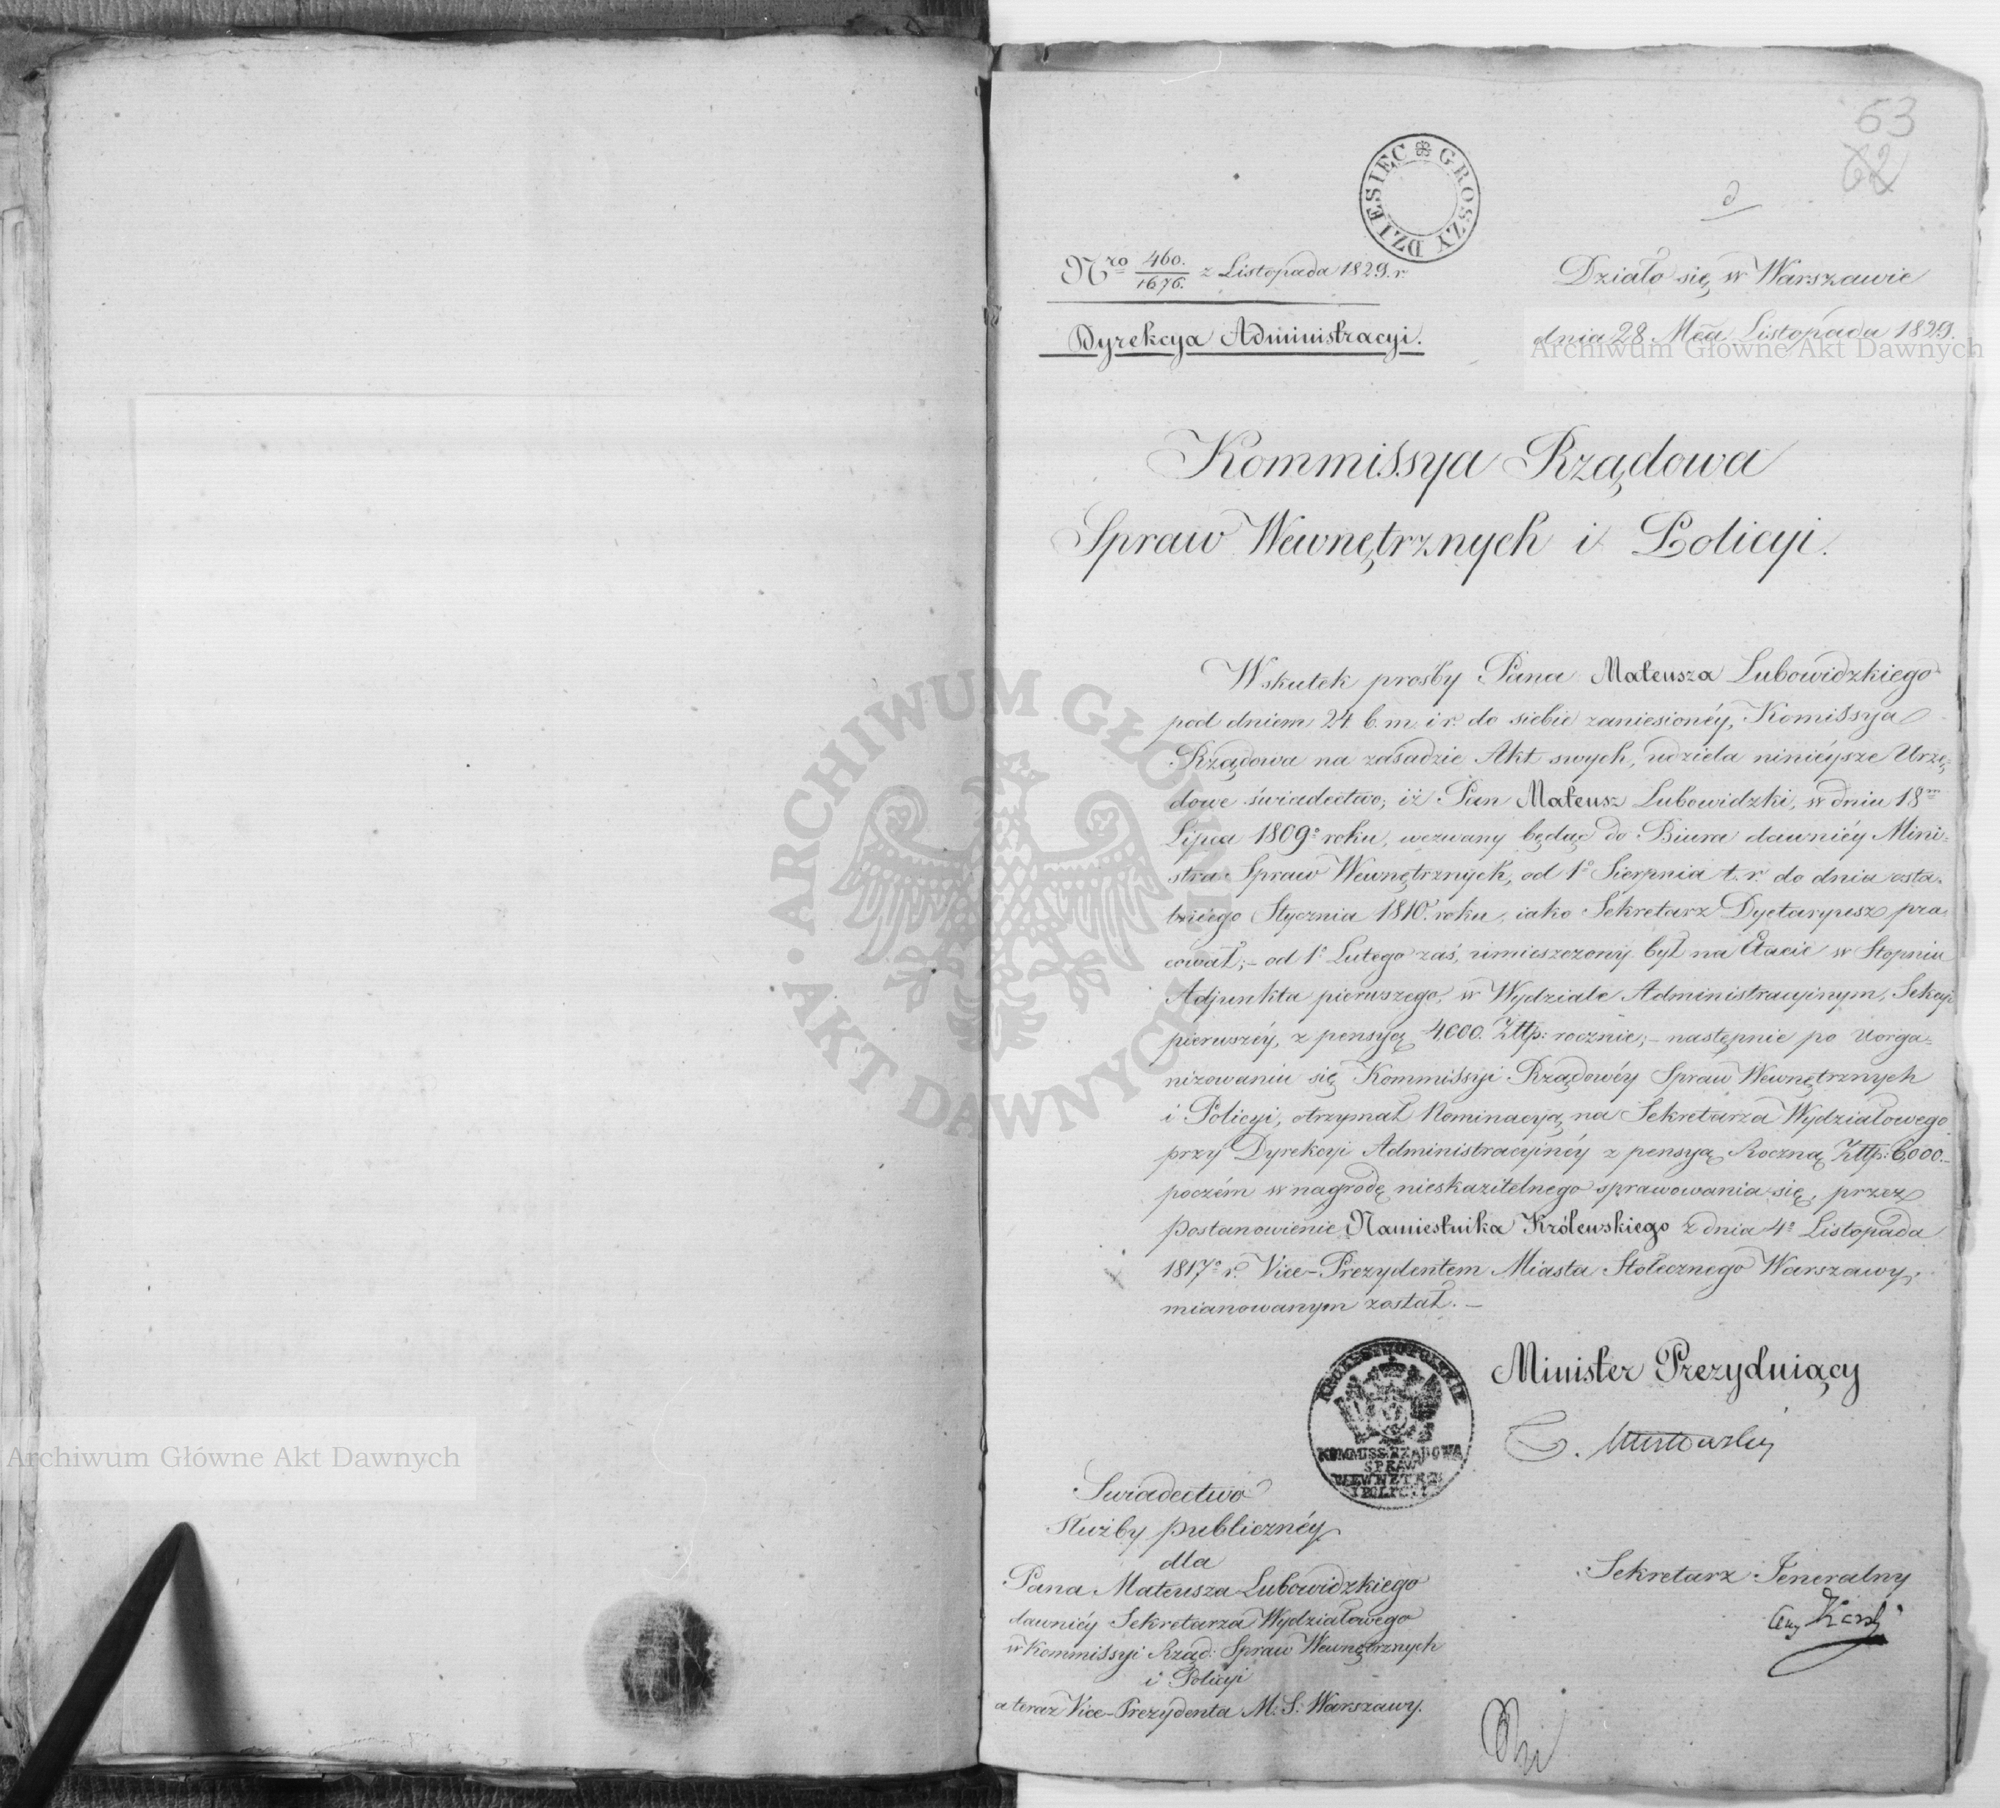 63
62
GROSZY DZIESIEC
Nro 460./1676. z Listopada 1829. r.
Działo się w Warszawie
dnia 28. Mca Listopada 1829.
Dyrekcya Administracyi.
Archiwum Główne Akt Dawnych
Kommissya Rządowa
Spraw Wewnętrznych i Policyi.
Wskutek prośby Pana Mateusza Lubowidzkiego
pod dniem 24. b. m. i r. do siebie zaniesionéy, Komissya
Rządowa na zasadzie Akt swych, udziela ninieysze Urzę-
dowe świadectwo, iż Pan Mateusz Lubowidzki, w dniu 18m
Lipca 1809o roku, wezwany będąc do Biura dawniéy Mini-
stra Spraw Wewnętrznych, od 1o Sierpnia t. r. do dnia osta-
tniego Stycznia 1810o roku, iako Sekretarz Dyetaryusz pra-
cował; – od 1o Lutego zaś, umieszczony był na Etacie w Stopniu
Adjunkta pierwszego, w Wydziale Administracyjnym, Sekcyi
pierwszéy, z pensyą 4,000. Złłp: rocznie; – następnie po Uorga-
nizowaniu się Kommissyi Rządowéy Spraw Wewnętrznych
i Policyi, otrzymał Nominacyą na Sekretarza Wydziałowego
przy Dyrekcyi Administracyinéy z pensyą Roczną Złłp: 6,000. –
poczém w nagrodę nieskazitelnego sprawowania się, przez
Postanowienie Namiestnika Królewskiego z dnia 4o Listopada
1817o r. Vice-Prezydentem Miasta Stołecznego Warszawy,
mianowanym został. –
Minister Prezyduiący
KROLESTWO POLSKIE
KOMMISS. RZĄDOWA
SPRAW
WEWNĘTRZ
I POLICYI
Archiwum Główne Akt Dawnych
Swiadectwo
służby publicznéy
dla
Pana Mateusza Lubowidzkiego
dawniéy Sekretarza Wydziałowego
w Kommissyi Rząd: Spraw Wewnętrznych
i Policyi
a teraz Vice-Prezydenta M: S: Warszawy.
Sekretarz Jeneralny
ARCHIWUM GŁÓWNE AKT DAWNYCH